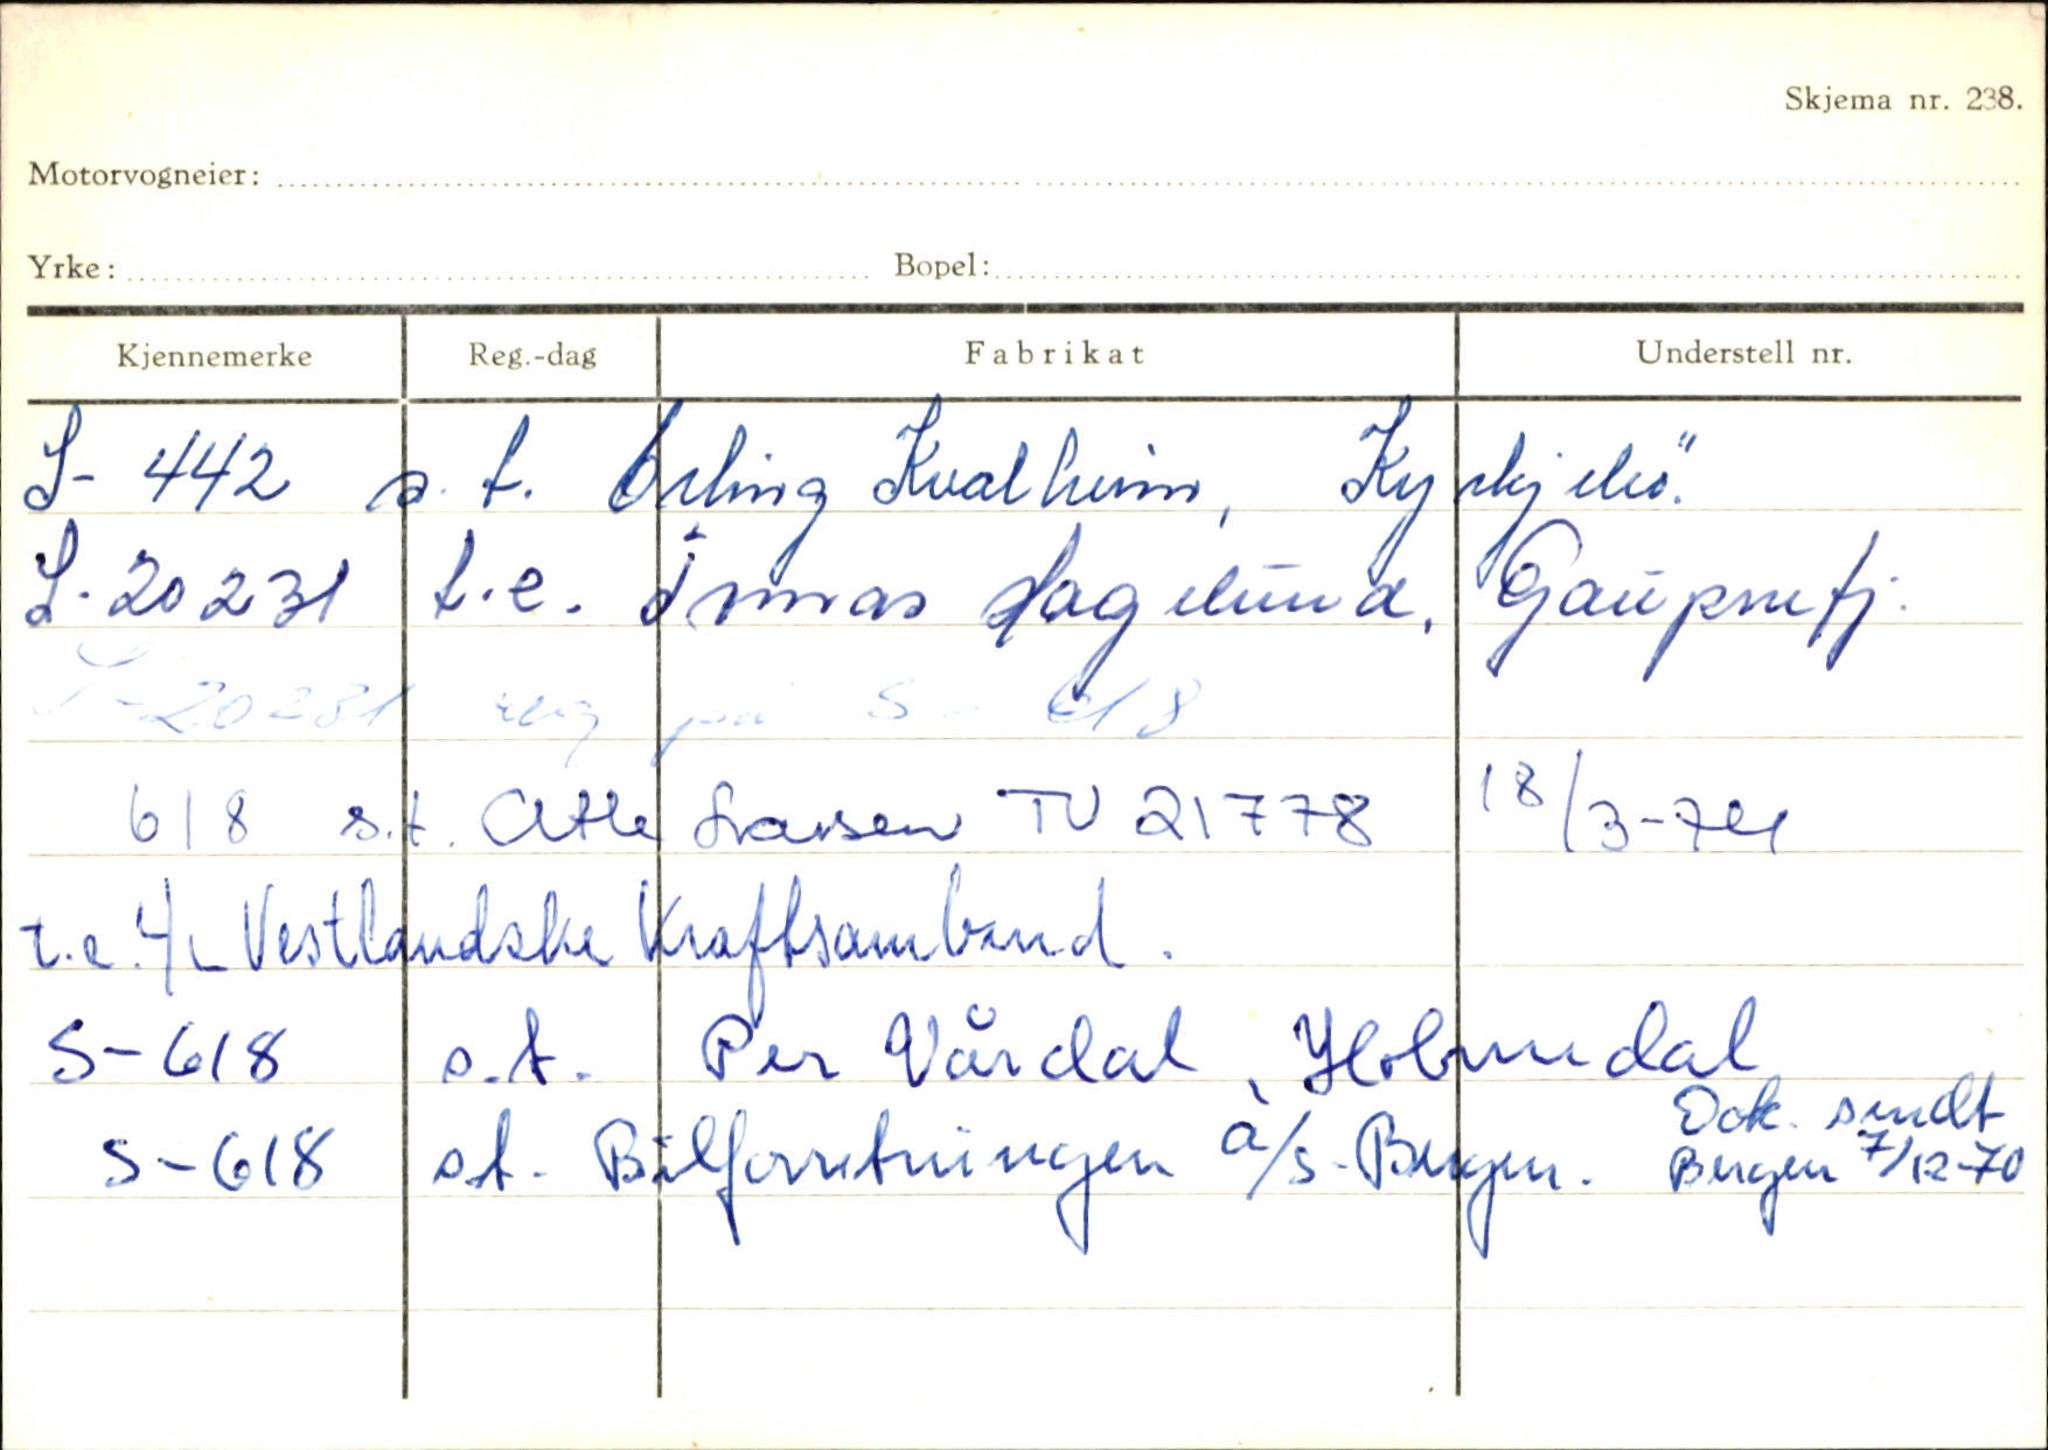 Skjema nr. 238.
Motorvogneier:
Yrke: Bopel:
Kjennemerke Reg.-dag Fabrikat Understell nr.
S- 442 s.t. Erling Kvalheim, Kyrkjebø.
S-20231 t.e. Jonas Hageland, Gaupnefj.
S-20231 reg på S- 618
618 s.t. Atle Larsen TU 21778 18/3-74
t.e. A/L Vestlandske Kraftsamband.
S-618 s.t. Per Vårdal, Holmedal
S-618 s.t. Bilforretningen A/S-Bergen. Dok. sendt
Bergen 7/12-70